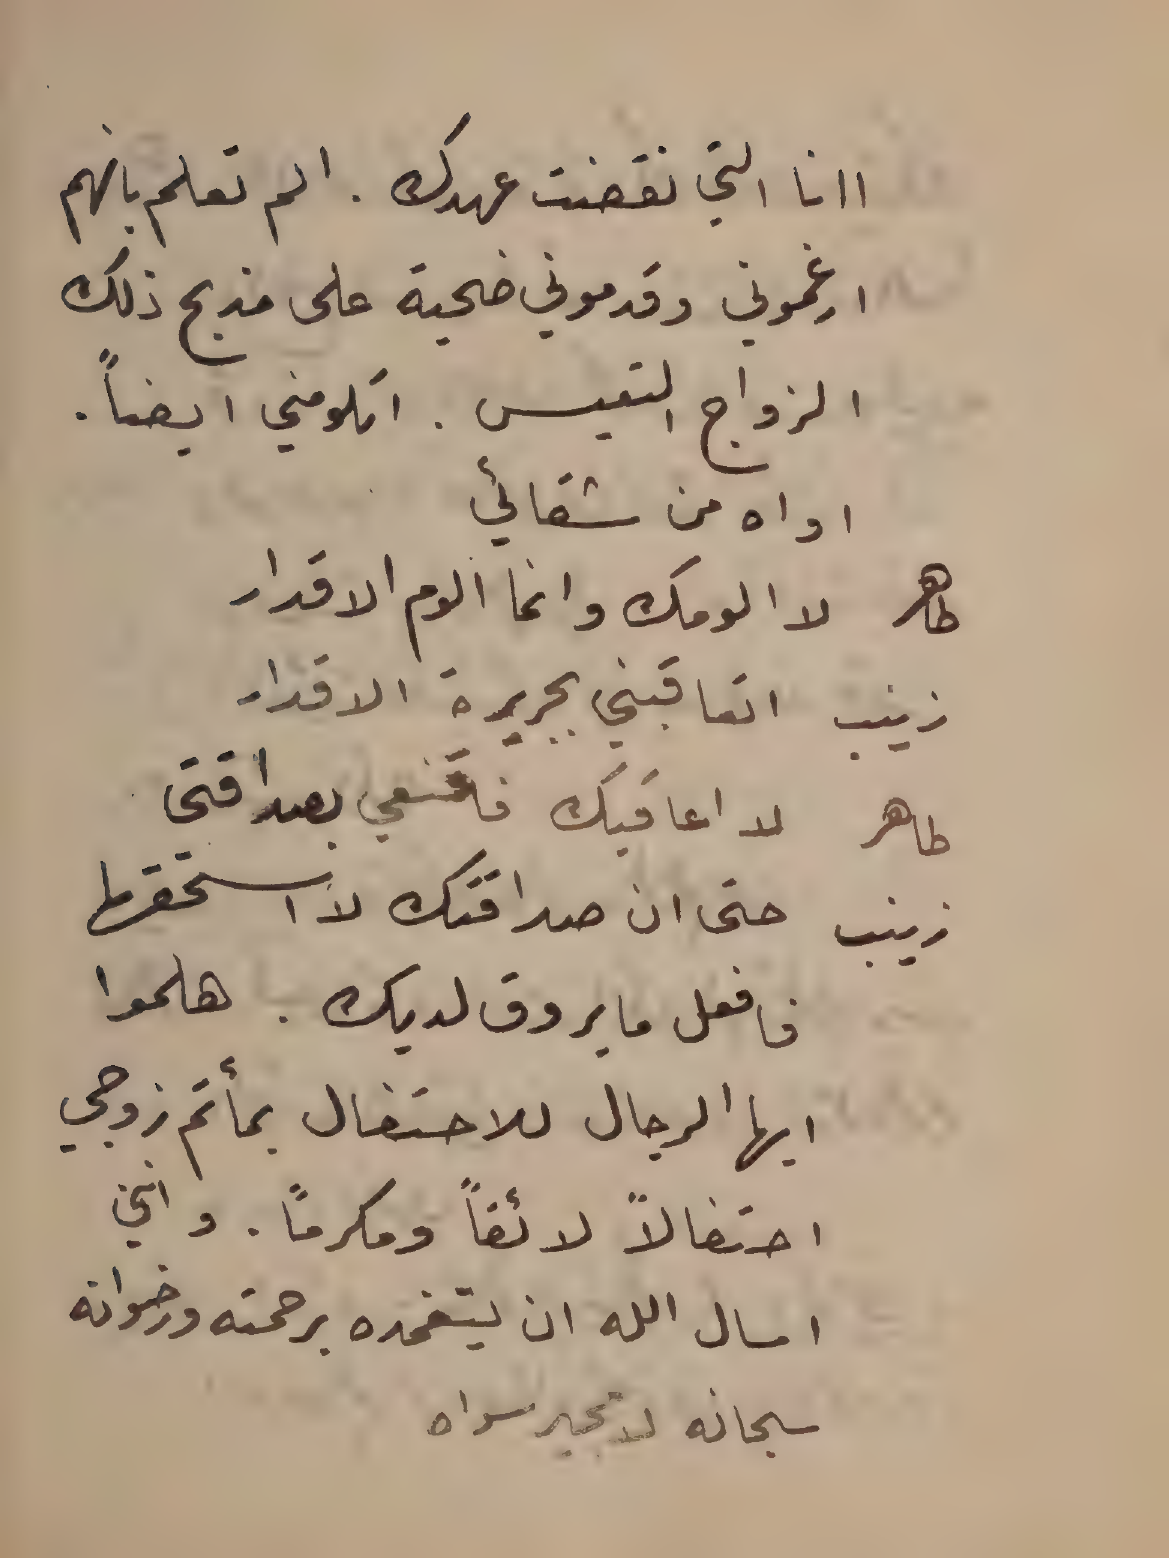 اانا التي نقضت عهدك . الم تعلم بانهم
ارغموني وقدموني ضحية على مذبح ذلك
الزواج التعيس . اتلومني ايضاً .
اواه من شقائي
طاهر لا الومك وانما الوم الاقدار
زينب اتعاقبني بجريرة الاقدار
طاهر لا اعاقبك فاقنعي بصداقتي
زينب حتى ان صداقتك لا استحقها
فافعل ما يروق لديك . هلموا
ايها الرجال للاحتفال بمأتم زوجي
احتفالاً لائقاً ومكرماً . وانني
اسال الله ان يتغمده برحمته ورضوانه
سبحانه لا مجير سواه